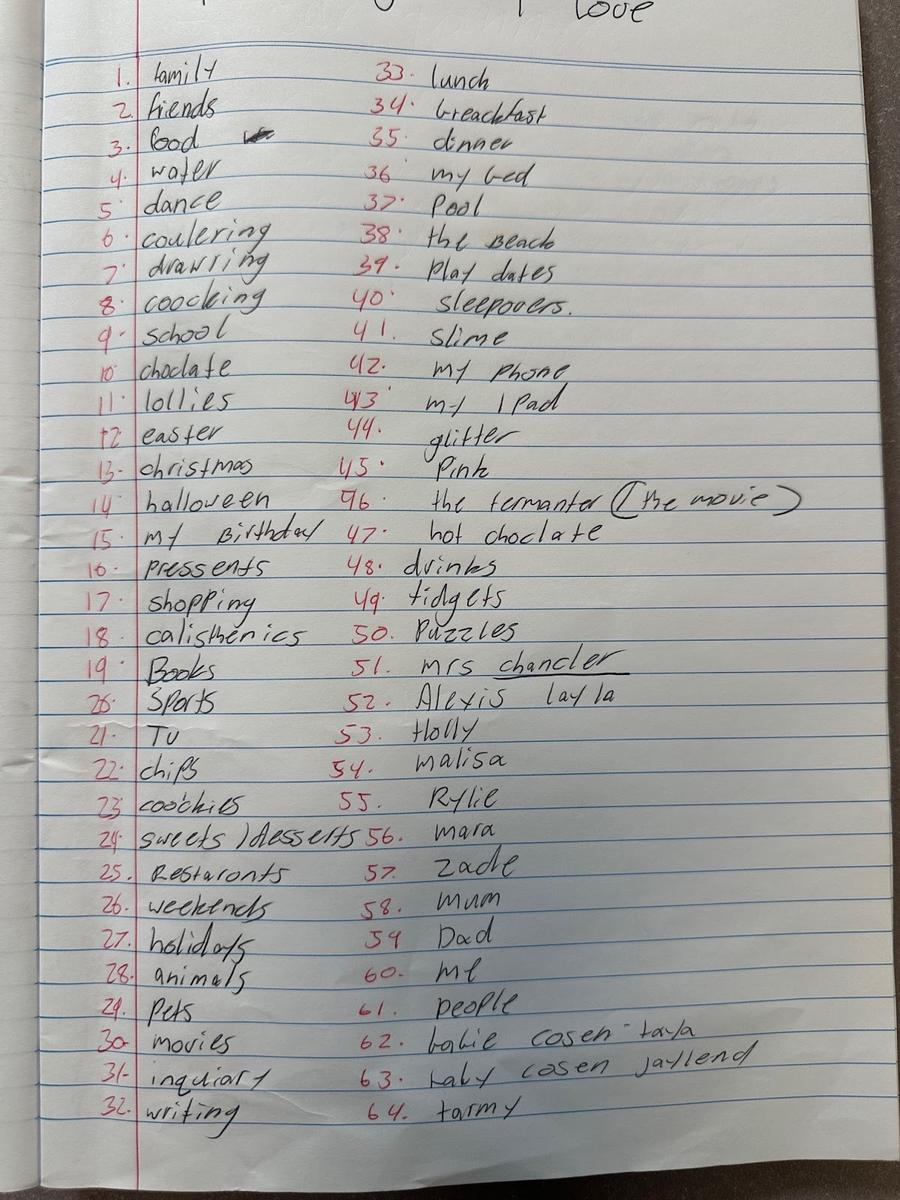 love
1. family
2. friends
3. food
4. water
5. dance
6. coulering
7. drawring
8. coocking
9. school
10. choclate
11. lollies
12. easter
13. christmas
14. halloween
15. my Birthday
16. pressents
17. shopping
18. calisthenics
19. Books
20. Sports
21. TV
22. chips
23. coockies
24. sweets/desserts
25. Restaronts
26. weekends
27. holidays
28. animals
29. Pets
30. movies
31. inquiary
32. writing
33. lunch
34. breackfast
35. dinner
36. my bed
37. Pool
38. the Beach
39. Play dates
40. sleepovers.
41. slime
42. my Phone
43. my IPad
44. glitter
45. Pink
46. the termanter (the movie)
47. hot choclate
48. drinks
49. fidgets
50. Puzzles
51. mrs chancler
52. Alexis layla
53. Holly
54. malisa
55. Rylie
56. mara
57. Zade
58. mum
59 Dad
60. me
61. people
62. babie cosen taya
63. baby cosen jaylend
64. tarmy